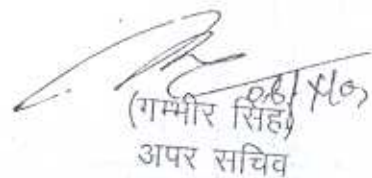 (गम्भीर सिंह)
अपर सचिव